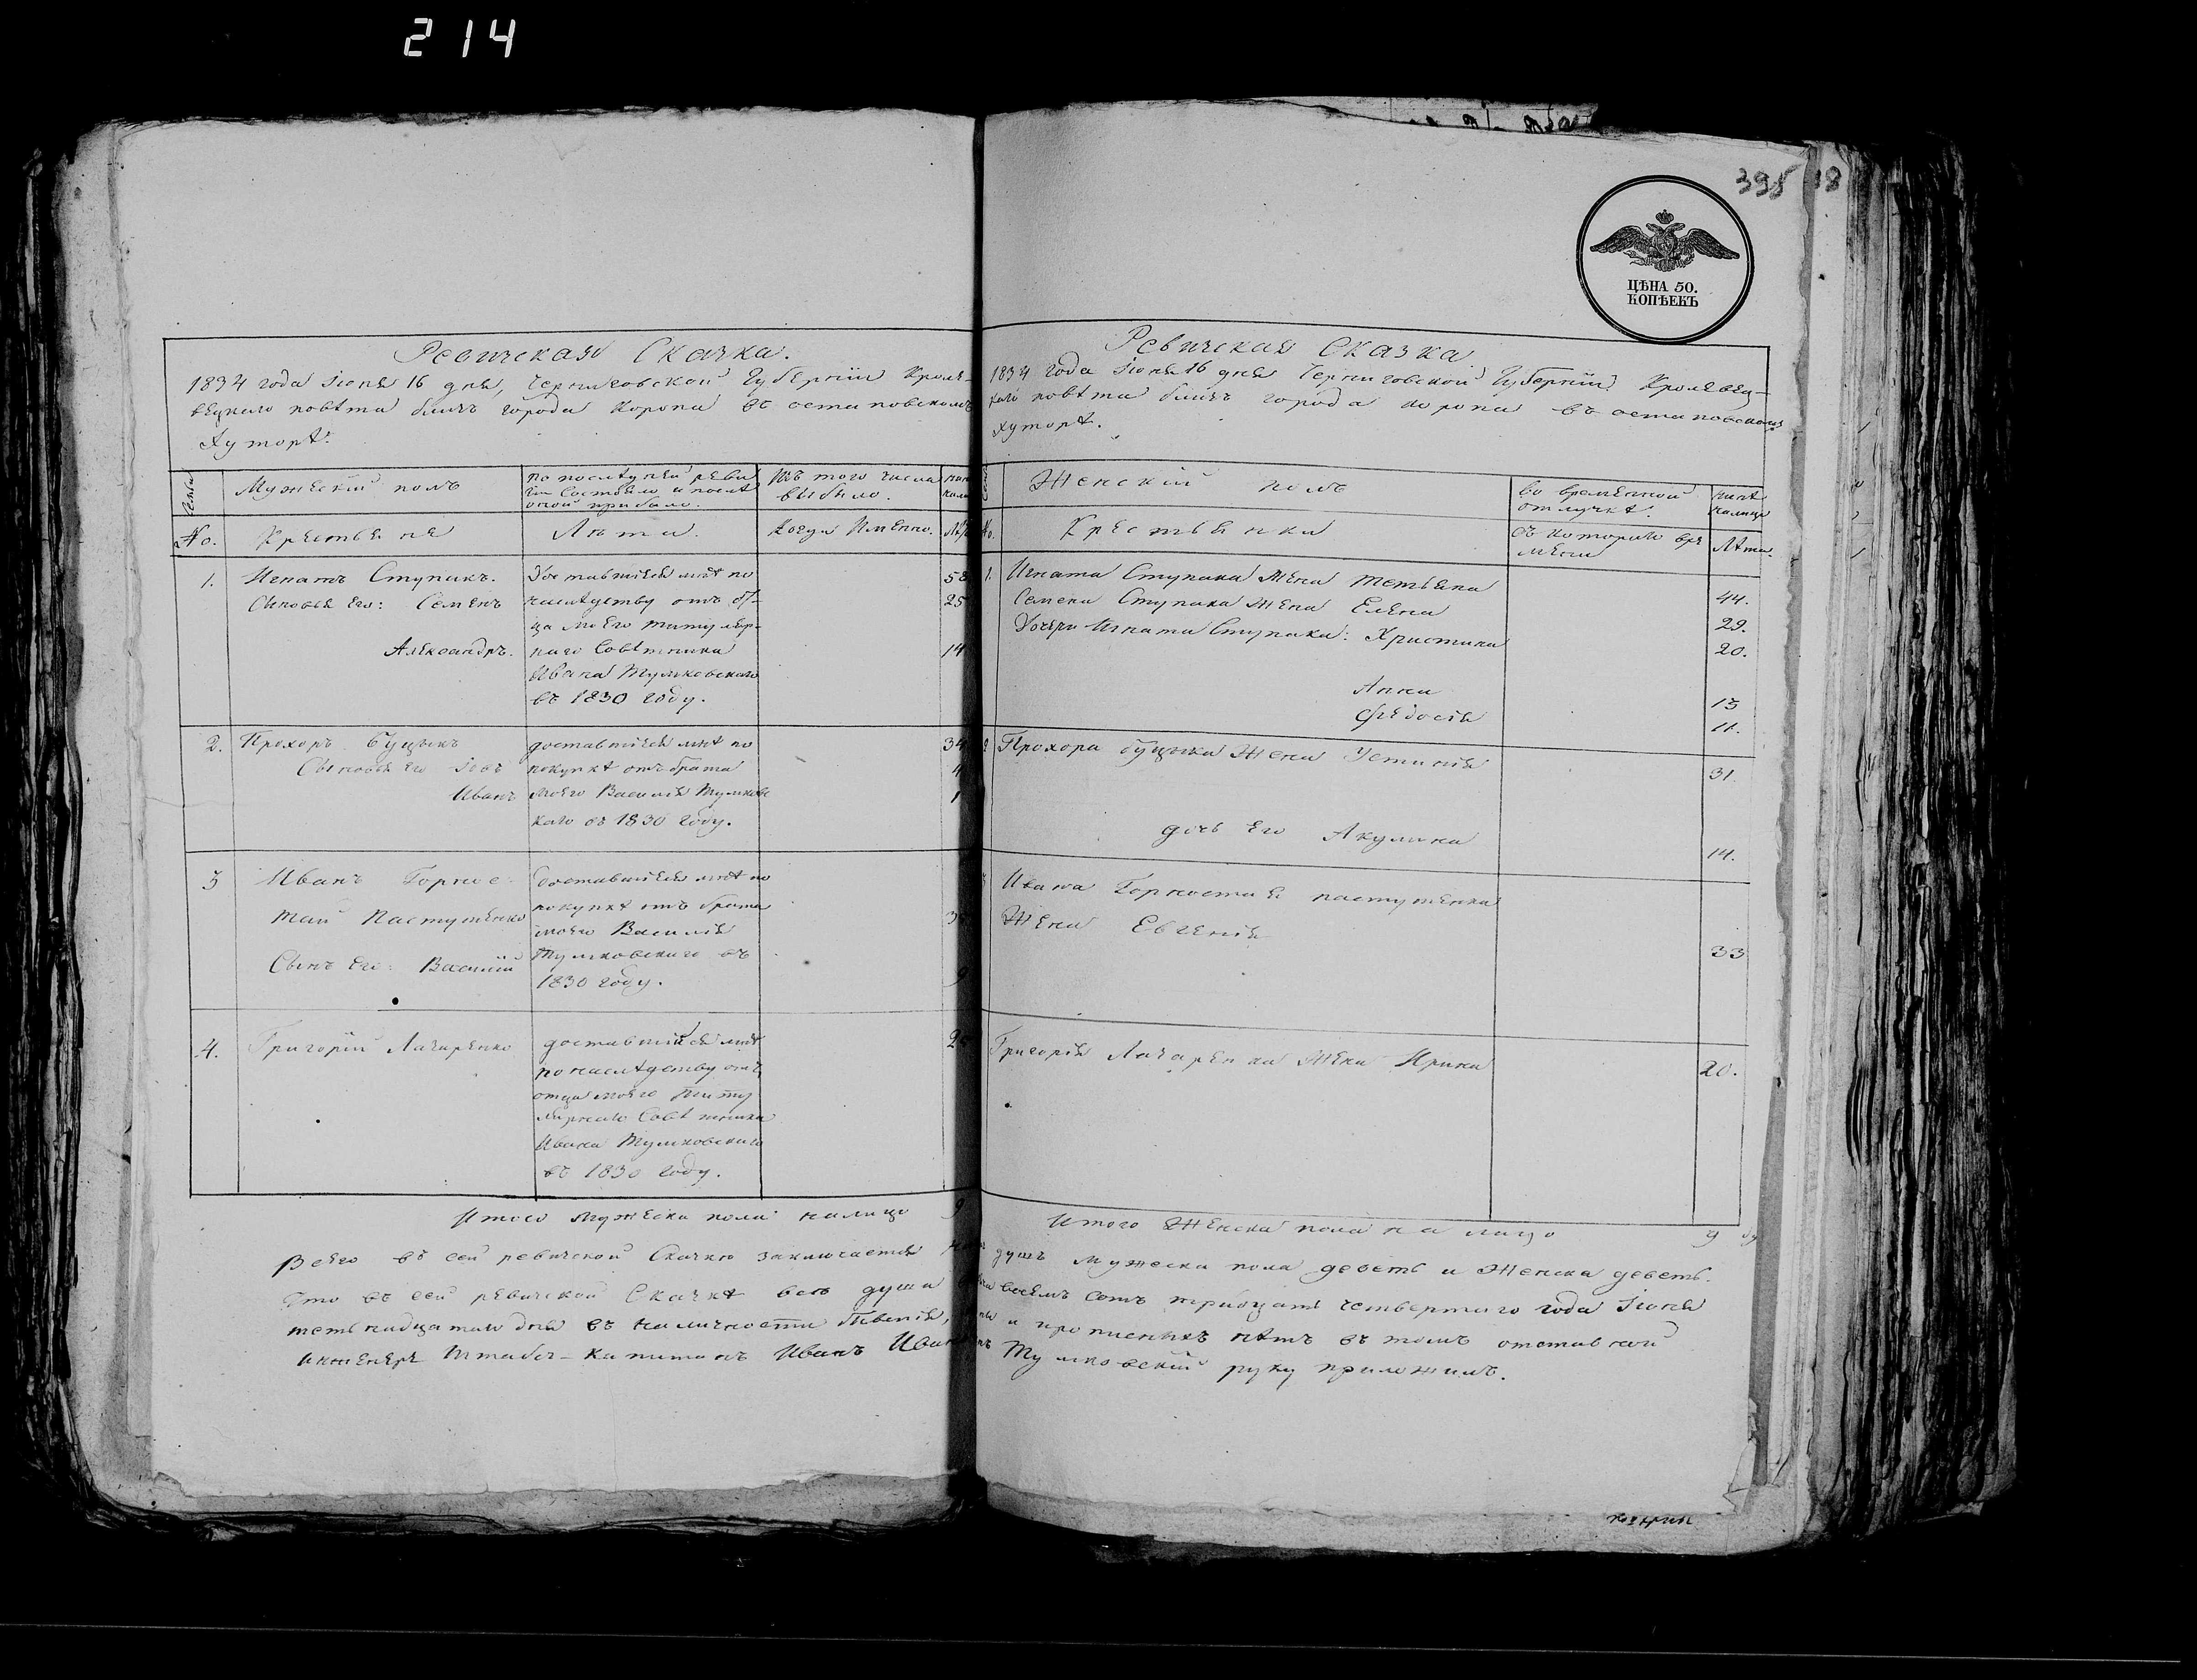 214
395
18
ЦѢНА 50.
КОПѢЕКЪ
Ревизская Сказка.
1834 года Іюня 16 дня, Черниговской Губерніи Кроле-
вецкаго повѣта близъ города Коропа въ остаповскомъ
Хуторѣ.
Семьи
Мужескій полъ
по послѣдней реви
зіи Состояло и послѣ
оной прибыло.
Изъ того числа
выбыло.
No.
Крестьяне
Лѣта.
Когда Именно.
1.
Игнатъ Ступакъ.
Доставшіеся мнѣ по
58
Сыновья его: Семенъ
наслѣдству отъ от-
25
ца моего титуляр-
Александръ.
наго Совѣтника
14
Ивана Тумковскаго
въ 1830 году.
2.
Прохоръ буцыкъ
доставшіеся мнѣ по
34
Сыновья его Іовъ
покупкѣ отъ брата
4
Иванъ
моего Василія Тумковс
1
каго въ 1830 году.
3
Иванъ Горнос-
доставшіеся мнѣ по
тай Пастушенко
покупкѣ отъ брата
моего Василія
Сынъ его: Василій
Тумковскаго въ
9
1830 году.
4.
Григорій Лазаренко
доставшійся мнѣ
по наслѣдству отъ
отца моего титу
лярнаго Совѣтника
Ивана Тумковскаго
въ 1830 году.
Итого мужеска пола налицо 9
Всего въ сей ревизской Сказкѣ заключается
Что въ сей ревизской Сказкѣ всѣ души
тестьнадцатаго дня въ наличности бывшія,
инженеръ Штабсъ-Капитанъ Иванъ Иван
Ревизская Сказка
1834 года Іюня 16 дня Черниговской Губерніи Кролевец-
каго повѣта близъ города коропа въ остаповскомъ
хуторѣ.
Женскій полъ
во временной
отлучкѣ.
нынѣ
налицо
No.
Крестьянки
Съ котораго вре
мени
Лѣта.
1.
Игната Ступака Жена Тетьяна
44.
Семена Ступака Жена Елена
29.
Дочери Игната Ступака: Христина
20.
Анна
13
Ѳедосія
11.
2
Прохора буцыка Жена Устинія
31.
дочь его Акулина
14.
Ивана Горностая пастушенка
Жена Евгенія
33
Григорія Лазаренка Жена Ирина
20.
Итого Женска пола на лицо 9
душъ мужеска пола девять и Женска девять.
восемъ сотъ тридцать четвертаго года Іюня
и прописныхъ нѣтъ въ томъ отставной
Тумковскій руку приложилъ.